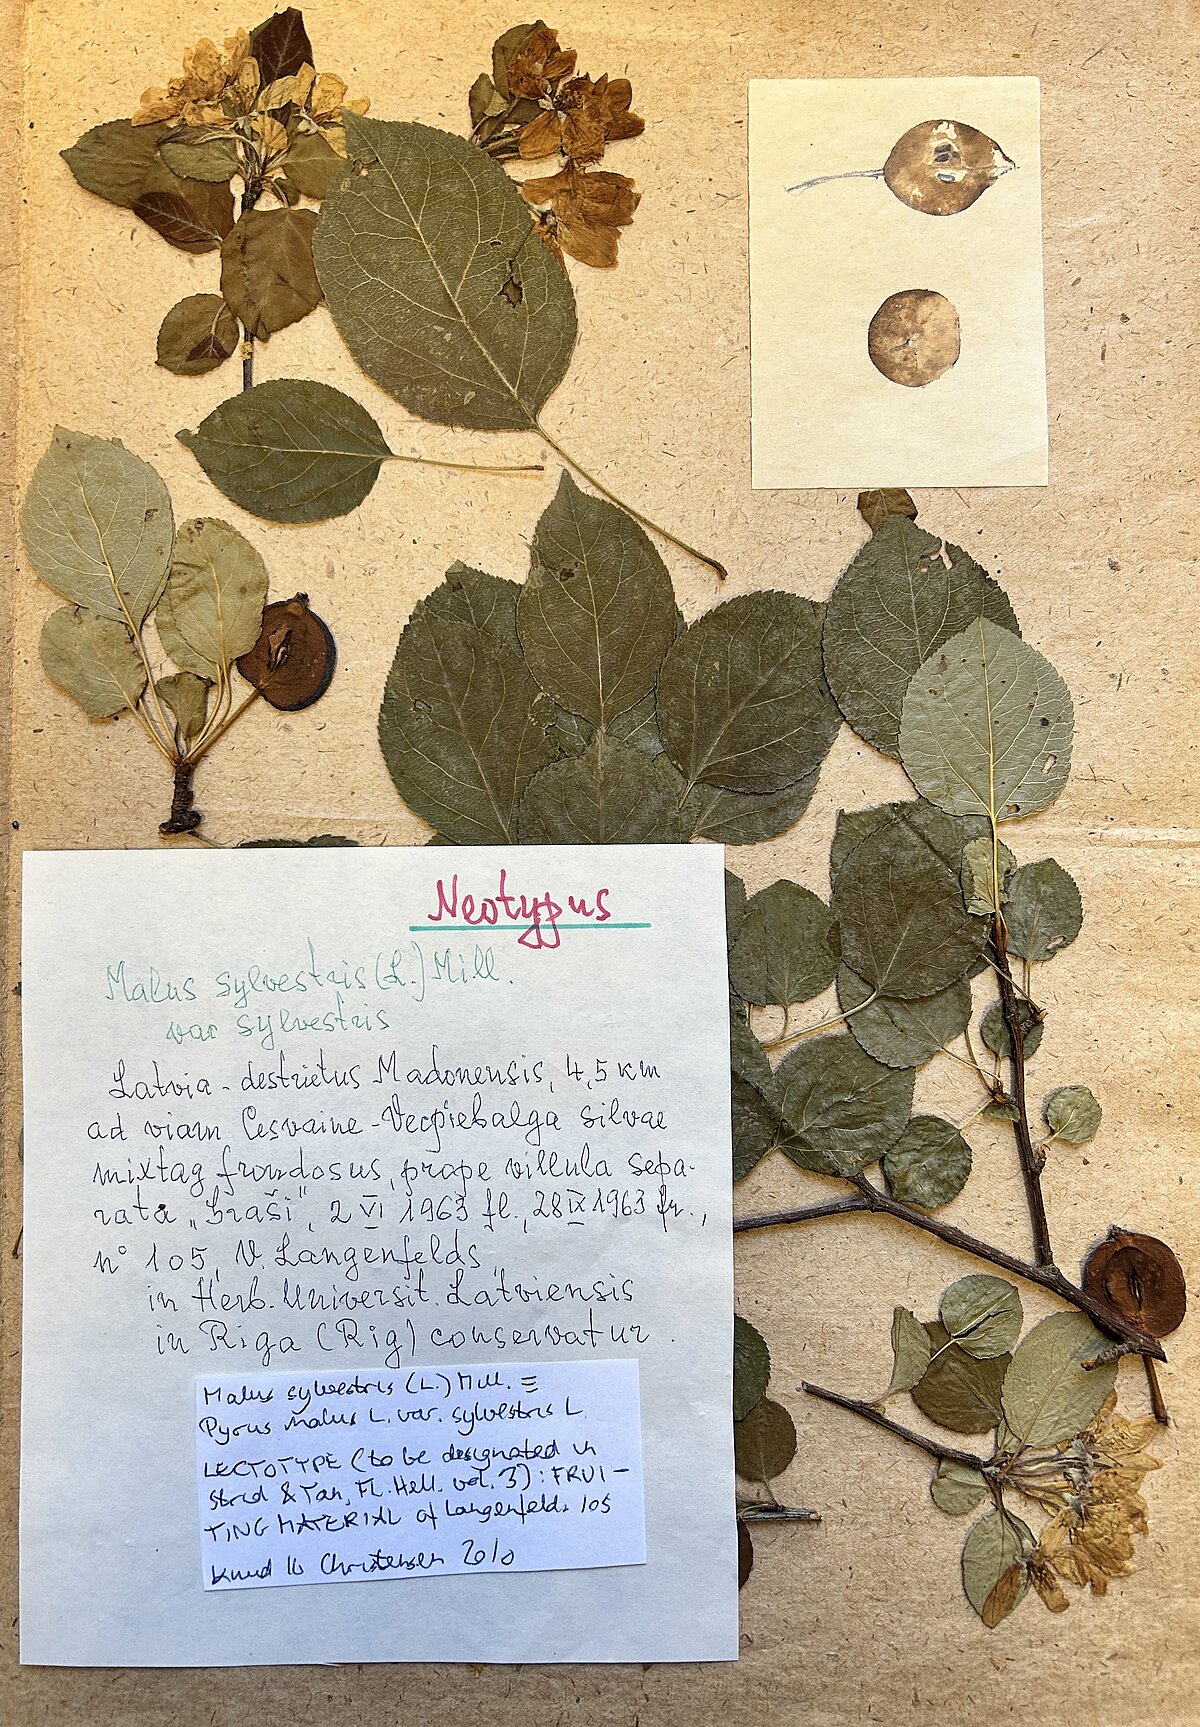 Neotypus
Malus sylvestris (L.) Mill.
var sylvestris
Latvia - destrictus Madonensis, 4,5 km
ad viam Cesvaine - Vecpiebalga silvae
mixtae frondosus, prope villula sepa-
rata „Graši", 2 VI 1963 fl., 28 IX 1963 fr.,
n° 105, V. Langenfelds
in Herb. Universit. Latviensis
in Riga (Rig) conservatur.
Malus sylvestris (L.) Mill. ≡
Pyrus malus L. var. sylvestris L.
LECTOTYPE (to be designated in
Strid & Tan, Fl. Hell. vol. 3): FRUI-
TING MATERIAL of Langenfelds 105
Knud Ib Christensen 2010